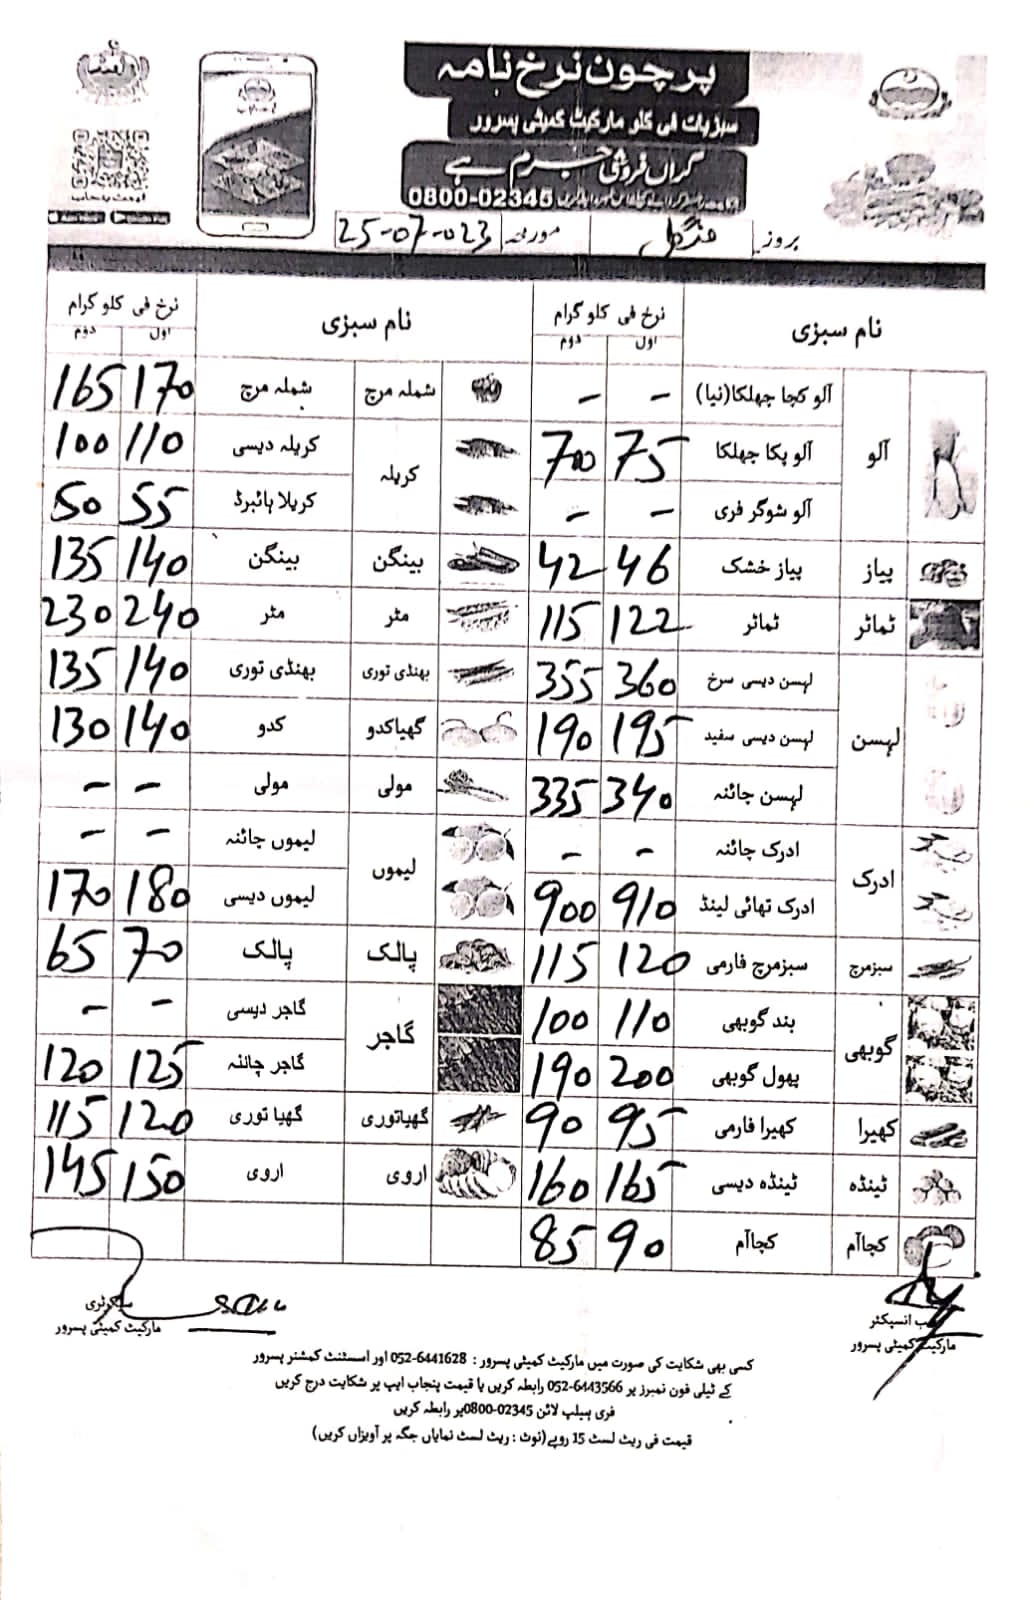 پرچون نرخ نامہ
سبزیات فی کلو مارکیٹ کمیٹی پسرور
گراں فروشی جرم ہے
0800-02345
بروز منگل مورخہ 25-07-023
نام سبزی نرخ فی کلو گرام نام سبزی نرخ فی کلو گرام
اول دوم اول دوم
آلو آلو کچا چھلکا(نیا) - - شملہ مرچ شملہ مرچ 170 165
آلو پکا چھلکا 75 70 کریلہ کریلہ دیسی 110 100
آلو شوگر فری - - کریلا ہائبرڈ 55 50
پیاز پیاز خشک 46 42 بینگن بینگن 140 135
ٹماٹر ٹماٹر 122 115 مٹر مٹر 240 230
لہسن لہسن دیسی سرخ 360 355 بھنڈی توری بھنڈی توری 140 135
لہسن دیسی سفید 195 190 گھیاکدو کدو 140 130
لہسن چائنہ 340 335 مولی مولی - -
ادرک ادرک چائنہ - - لیموں لیموں چائنہ - -
ادرک تھائی لینڈ 910 900 لیموں دیسی 180 170
سبزمرچ سبزمرچ فارمی 120 115 پالک پالک 70 65
گوبھی بند گوبھی 110 100 گاجر گاجر دیسی - -
پھول گوبھی 200 190 گاجر چائنہ 125 120
کھیرا کھیرا فارمی 95 90 گھیاتوری گھیا توری 120 115
ٹینڈہ ٹینڈہ دیسی 165 160 اروی اروی 150 145
کچاآم کچاآم 90 85
سب انسپکٹر
مارکیٹ کمیٹی پسرور
سیکرٹری
مارکیٹ کمیٹی پسرور
کسی بھی شکایت کی صورت میں مارکیٹ کمیٹی پسرور : 052-6441628 اور اسسٹنٹ کمشنر پسرور
کے ٹیلی فون نمبرز پر 052-6443566 رابطہ کریں یا قیمت پنجاب ایپ پر شکایت درج کریں
فری ہیلپ لائن 02345-0800پر رابطہ کریں
قیمت فی ریٹ لسٹ 15 روپے(نوٹ : ریٹ لسٹ نمایاں جگہ پر آویزاں کریں)